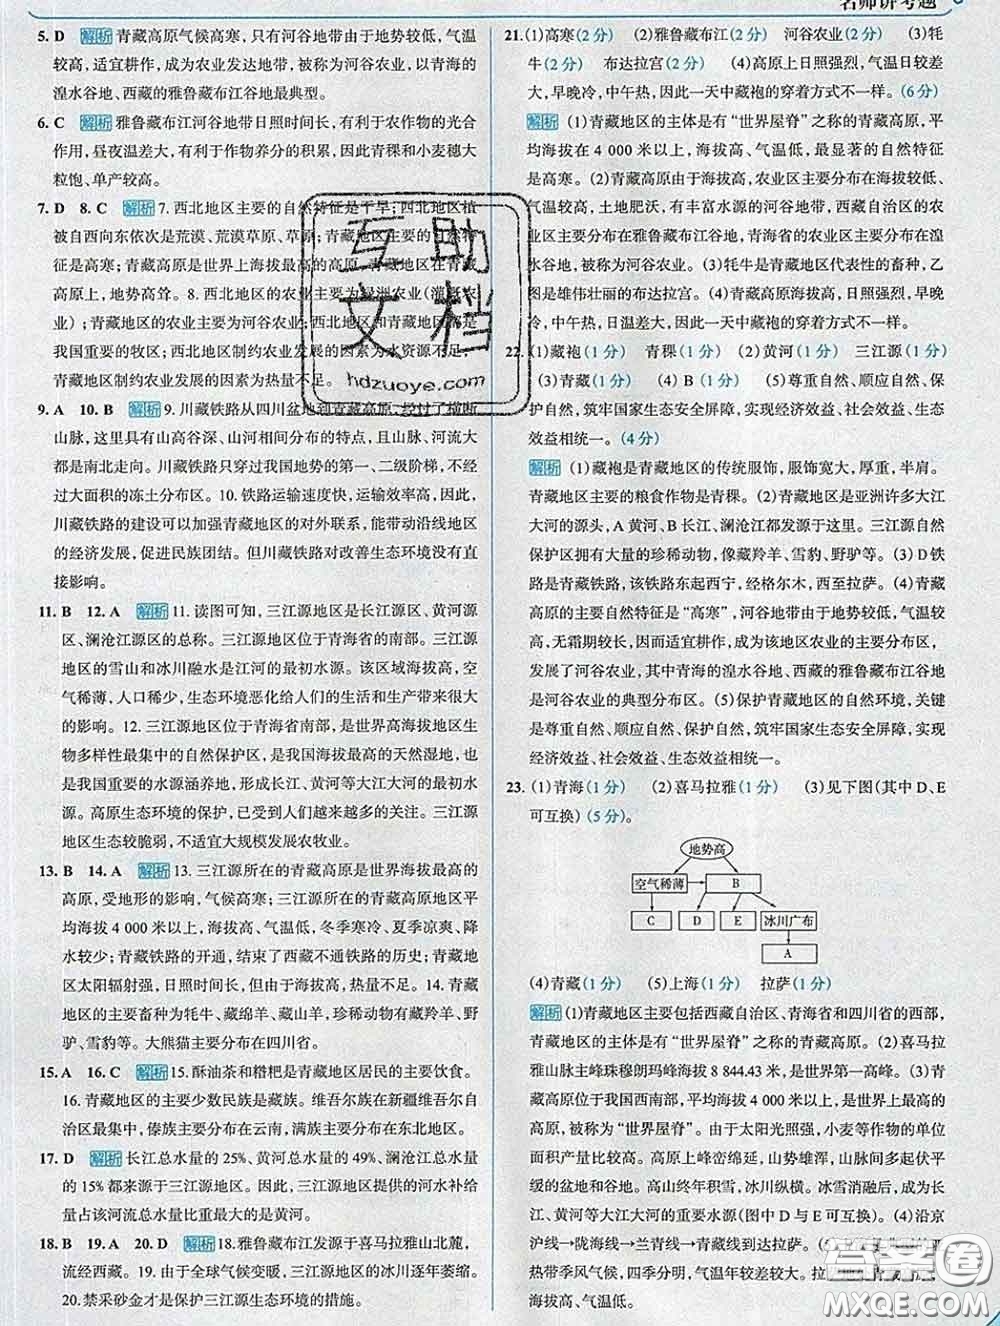 名师讲考题
5. D 解析 青藏高原气候高寒,只有河谷地带由于地势较低,气温
较高,适宜耕作,成为农业发达地带,被称为河谷农业,以青海的
湟水谷地、西藏的雅鲁藏布江谷地最典型。
6. C 解析 雅鲁藏布江河谷地带日照时间长,有利于农作物的光合
作用,昼夜温差大,有利于作物养分的积累,因此青稞和小麦穗大
粒饱、单产较高。
7. D 8. C 解析 7. 西北地区主要的自然特征是干旱;西北地区植
被自西向东依次是荒漠、荒漠草原、草原;青藏地区主要的自然特
征是高寒;青藏高原是世界上海拔最高的高原,青藏地区在青藏
高原上,地势高耸。8. 西北地区的农业主要为绿洲农业(灌溉农
业);青藏地区的农业主要为河谷农业;西北地区和青藏地区都是
我国重要的牧区;西北地区制约农业发展的因素为水资源不足,
青藏地区制约农业发展的因素为热量不足。
9. A 10. B 解析 9. 川藏铁路从四川盆地到青藏高原,经过了横断
山脉,这里具有山高谷深、山河相间分布的特点,且山脉、河流大
都是南北走向。川藏铁路只穿过我国地势的第一、二级阶梯,不经
过大面积的冻土分布区。10. 铁路运输速度快,运输效率高,因此,
川藏铁路的建设可以加强青藏地区的对外联系,能带动沿线地区
的经济发展,促进民族团结。但川藏铁路对改善生态环境没有直
接影响。
11. B 12. A 解析 11. 读图可知,三江源地区是长江源区、黄河源
区、澜沧江源区的总称。三江源地区位于青海省的南部。三江源
地区的雪山和冰川融水是江河的最初水源。该区域海拔高,空
气稀薄,人口稀少,生态环境恶化给人们的生活和生产带来很大
的影响。12. 三江源地区位于青海省南部,是世界高海拔地区生
物多样性最集中的自然保护区,是我国海拔最高的天然湿地,也
是我国重要的水源涵养地,形成长江、黄河等大江大河的最初水
源。高原生态环境的保护,已受到人们越来越多的关注。三江源
地区生态较脆弱,不适宜大规模发展农牧业。
13. B 14. A 解析 13. 三江源所在的青藏高原是世界海拔最高的
高原,受地形的影响,气候高寒。三江源所在的青藏高原地区平
均海拔 4 000 米以上,海拔高、气温低,冬季寒冷、夏季凉爽、降
水较少;青藏铁路的开通,结束了西藏不通铁路的历史;青藏地
区太阳辐射强,日照时间长,但由于海拔高,热量不足。14. 青藏
地区的主要畜种为牦牛、藏绵羊、藏山羊,珍稀动物为藏羚羊、野
驴、雪豹等。大熊猫主要分布在四川省。
15. A 16. C 解析 15. 酥油茶和糌粑是青藏地区居民的主要饮食。
16. 青藏地区的主要少数民族是藏族。维吾尔族在新疆维吾尔自
治区最集中,傣族主要分布在云南,满族主要分布在东北地区。
17. D 解析 长江总水量的 25%、黄河总水量的 49%、澜沧江总水量
的 15%都来源于三江源地区。因此,三江源地区提供的河水补给
量占该河流总水量比重最大的是黄河。
18. B 19. A 20. D 解析 18. 雅鲁藏布江发源于喜马拉雅山北麓,
流经西藏。19. 由于全球气候变暖,三江源地区的冰川逐年萎缩。
20. 禁采砂金才是保护三江源生态环境的措施。
21. (1)高寒(2 分) (2)雅鲁藏布江(2 分) 河谷农业(2 分) (3)牦
牛(2 分) 布达拉宫(2 分) (4)高原上日照强烈,气温日较差
大,早晚冷,中午热,因此一天中藏袍的穿着方式不一样。(6 分)
解析 (1)青藏地区的主体是有“世界屋脊”之称的青藏高原,平
均海拔在 4 000 米以上,海拔高、气温低,最显著的自然特征
是高寒。(2)青藏高原由于海拔高,农业区主要分布在海拔较低、
气温较高,土地肥沃,有丰富水源的河谷地带,西藏自治区的农
业区主要分布在雅鲁藏布江谷地,青海省的农业区主要分布在湟
水谷地,被称为河谷农业。(3)牦牛是青藏地区代表性的畜种,乙
图是雄伟壮丽的布达拉宫。(4)青藏高原海拔高,日照强烈,早晚
冷,中午热,日温差大,因此一天中藏袍的穿着方式不一样。
22. (1)藏袍(1 分) 青稞(1 分) (2)黄河(1 分) 三江源(1 分)
(3)青藏(1 分) (4) B (1 分) (5)尊重自然、顺应自然、保
护自然,筑牢国家生态安全屏障,实现经济效益、社会效益、生态
效益相统一。(4 分)
解析 (1)藏袍是青藏地区的传统服饰,服饰宽大,厚重,半肩。
青藏地区主要的粮食作物是青稞。(2)青藏地区是亚洲许多大江
大河的源头,A 黄河、B 长江、澜沧江都发源于这里。三江源自然
保护区拥有大量的珍稀动物,像藏羚羊、雪豹、野驴等。(3) D铁
路是青藏铁路,该铁路东起西宁,经格尔木,西至拉萨。(4)青藏
高原的主要自然特征是“高寒”,河谷地带由于地势较低,气温较
高,无霜期较长,因而适宜耕种,成为该地区农业的主要分布区,
发展了河谷农业,其中青海的湟水谷地、西藏的雅鲁藏布江谷地
是河谷农业的典型分布区。(5)保护青藏地区的自然环境,关键
是尊重自然、顺应自然、保护自然,筑牢国家生态安全屏障,实现
经济效益、社会效益、生态效益相统一。
23. (1)青海(1 分) (2)喜马拉雅(1 分) (3)见下图(其中 D、E
可互换)(5 分)。
地势高
空气稀薄 B
C D E 冰川广布
A
(4)青藏(1 分) (5)上海(1 分) 拉萨(1 分)
解析 (1)青藏地区主要包括西藏自治区、青海省和四川省的西部,
青藏地区的主体是有“世界屋脊”之称的青藏高原。(2)喜马拉
雅山脉主峰珠穆朗玛峰海拔 8 844.43 米,是世界第一高峰。(3)青
藏高原位于我国西南部,平均海拔 4 000 米以上,是世界最高的高
原,被称为“世界屋脊”。由于太阳光照强,小麦等作物的单位
面积产量比较高。高原上峰峦绵延,山势雄浑,山脉之间镶嵌着平
缓的盆地和谷地。高山终年积雪,冰川纵横。冰雪消融后,成为长
江、黄河等大江大河的重要水源(图中 D 与 E 可互换)。(4)沿京
沪线→陇海线→兰青线→青藏线到达拉萨。
带季风气候,四季分明,气温年较差较大。
海拔高、气温低。
互助
文档
hdzuoye.com
答案卷
MXQE.COM